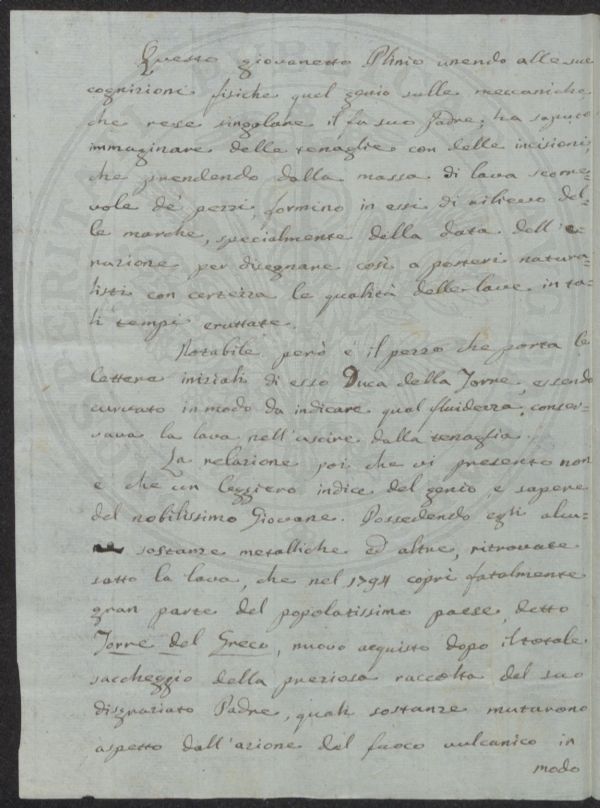 Questo giovanetto Plinio unendo alle sue
cognizioni fisiche quel genio sulle meccaniche,
che rese singolare il fu suo Padre; ha saputo
immaginare delle tenaglie con delle incisioni,
che prendendo dalla massa di lava scorre-
vole de' pezzi, formino in essi di rilievo del-
le marche, specialmente della data dell'e-
ruzione per disegnare così a posteri natura-
listi con certezza le qualità delle lave in ta-
li tempi eruttate.
Notabile però è il pezzo che porta le
lettere iniziali di esso Duca della Torre, essendo
curvato in modo da indicare qual fluidezza conser-
vava la lava nell'uscire dalla tenaglia.
La relazione poi che vi presento non
è che un leggiero indice del genio, e sapere
del nobilissimo Giovane. Possedendo egli alcu-
sostanze metalliche ed altre, ritrovate
sotto la lava, che nel 1794 coprì fatalmente
gran parte del popolatissimo paese detto
Torre del Greco, nuovo acquisto dopo il totale
saccheggio della preziosa raccolta del suo
disgraziato Padre, quali sostanze mutarono
aspetto dall'azione del fuoco vulcanico in
modo